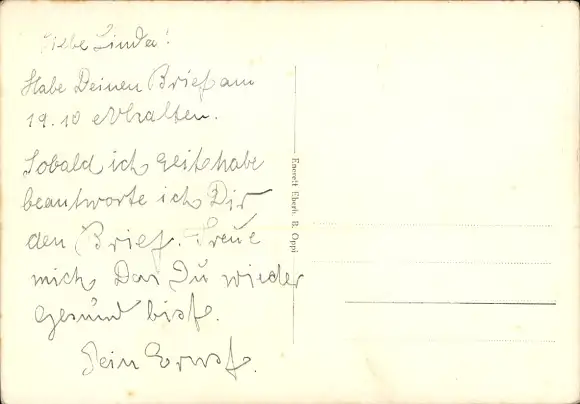 Liebe Linda!
Habe Deinen Brief am
19.10 erhalten.
Sobald ich Zeit habe
beantworte ich Dir
den Brief. Freue
mich Das Du wieder
gesund bist.
Dein Ernst.
Everett Eberh. R. Oppi